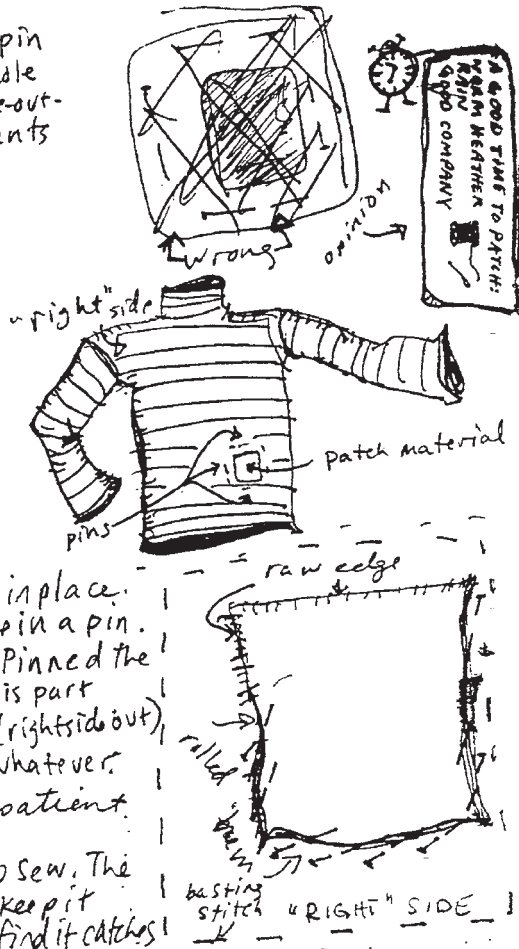 pin
ole
e-out-
ents
A GOOD TIME TO PATCH:
WARM WEATHER
RAIN
GOOD COMPANY
opinion
wrong
"right" side
patch material
pins
raw edge
in place.
e in a pin.
Pinned the
is part
(rightside out)
whatever.
patient.
o sew. The
keep it
find it catches
rolled
basting
stitch
"RIGHT" SIDE